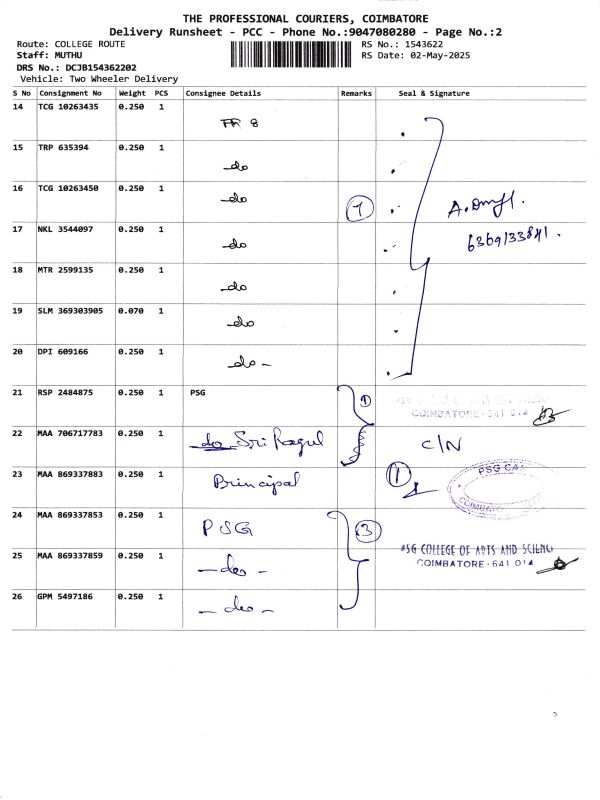 THE PROFESSIONAL COURIERS, COIMBATORE
Delivery Runsheet - PCC - Phone No.:9047080280 - Page No.:2
Route: COLLEGE ROUTE
RS No.: 1543622
Staff: MUTHU
RS Date: 02-May-2025
DRS No.: DCJB154362202
Vehicle: Two Wheeler Delivery
S No Consignment No Weight PCS Consignee Details Remarks Seal & Signature
14 TCG 10263435 0.250 1 8
15 TRP 635394 0.250 1 do
16 TCG 10263450 0.250 1 do 7
17 NKL 3544097 0.250 1 do
6369133841.
18 MTR 2599135 0.250 1 do
19 SLM 369303905 0.070 1 do
20 DPI 609166 0.250 1 do -
21 RSP 2484875 0.250 1 PSG 1
COIMBATORE-641 014
22 MAA 706717783 0.250 1 do Sri Ragul C/N
23 MAA 869337883 0.250 1 Principal 1
PSG CA
COIMBATORE
24 MAA 869337853 0.250 1 PSG 3
PSG COLLEGE OF ARTS AND SCIENC
25 MAA 869337859 0.250 1 - do - COIMBATORE-641 014
26 GPM 5497186 0.250 1 - do -